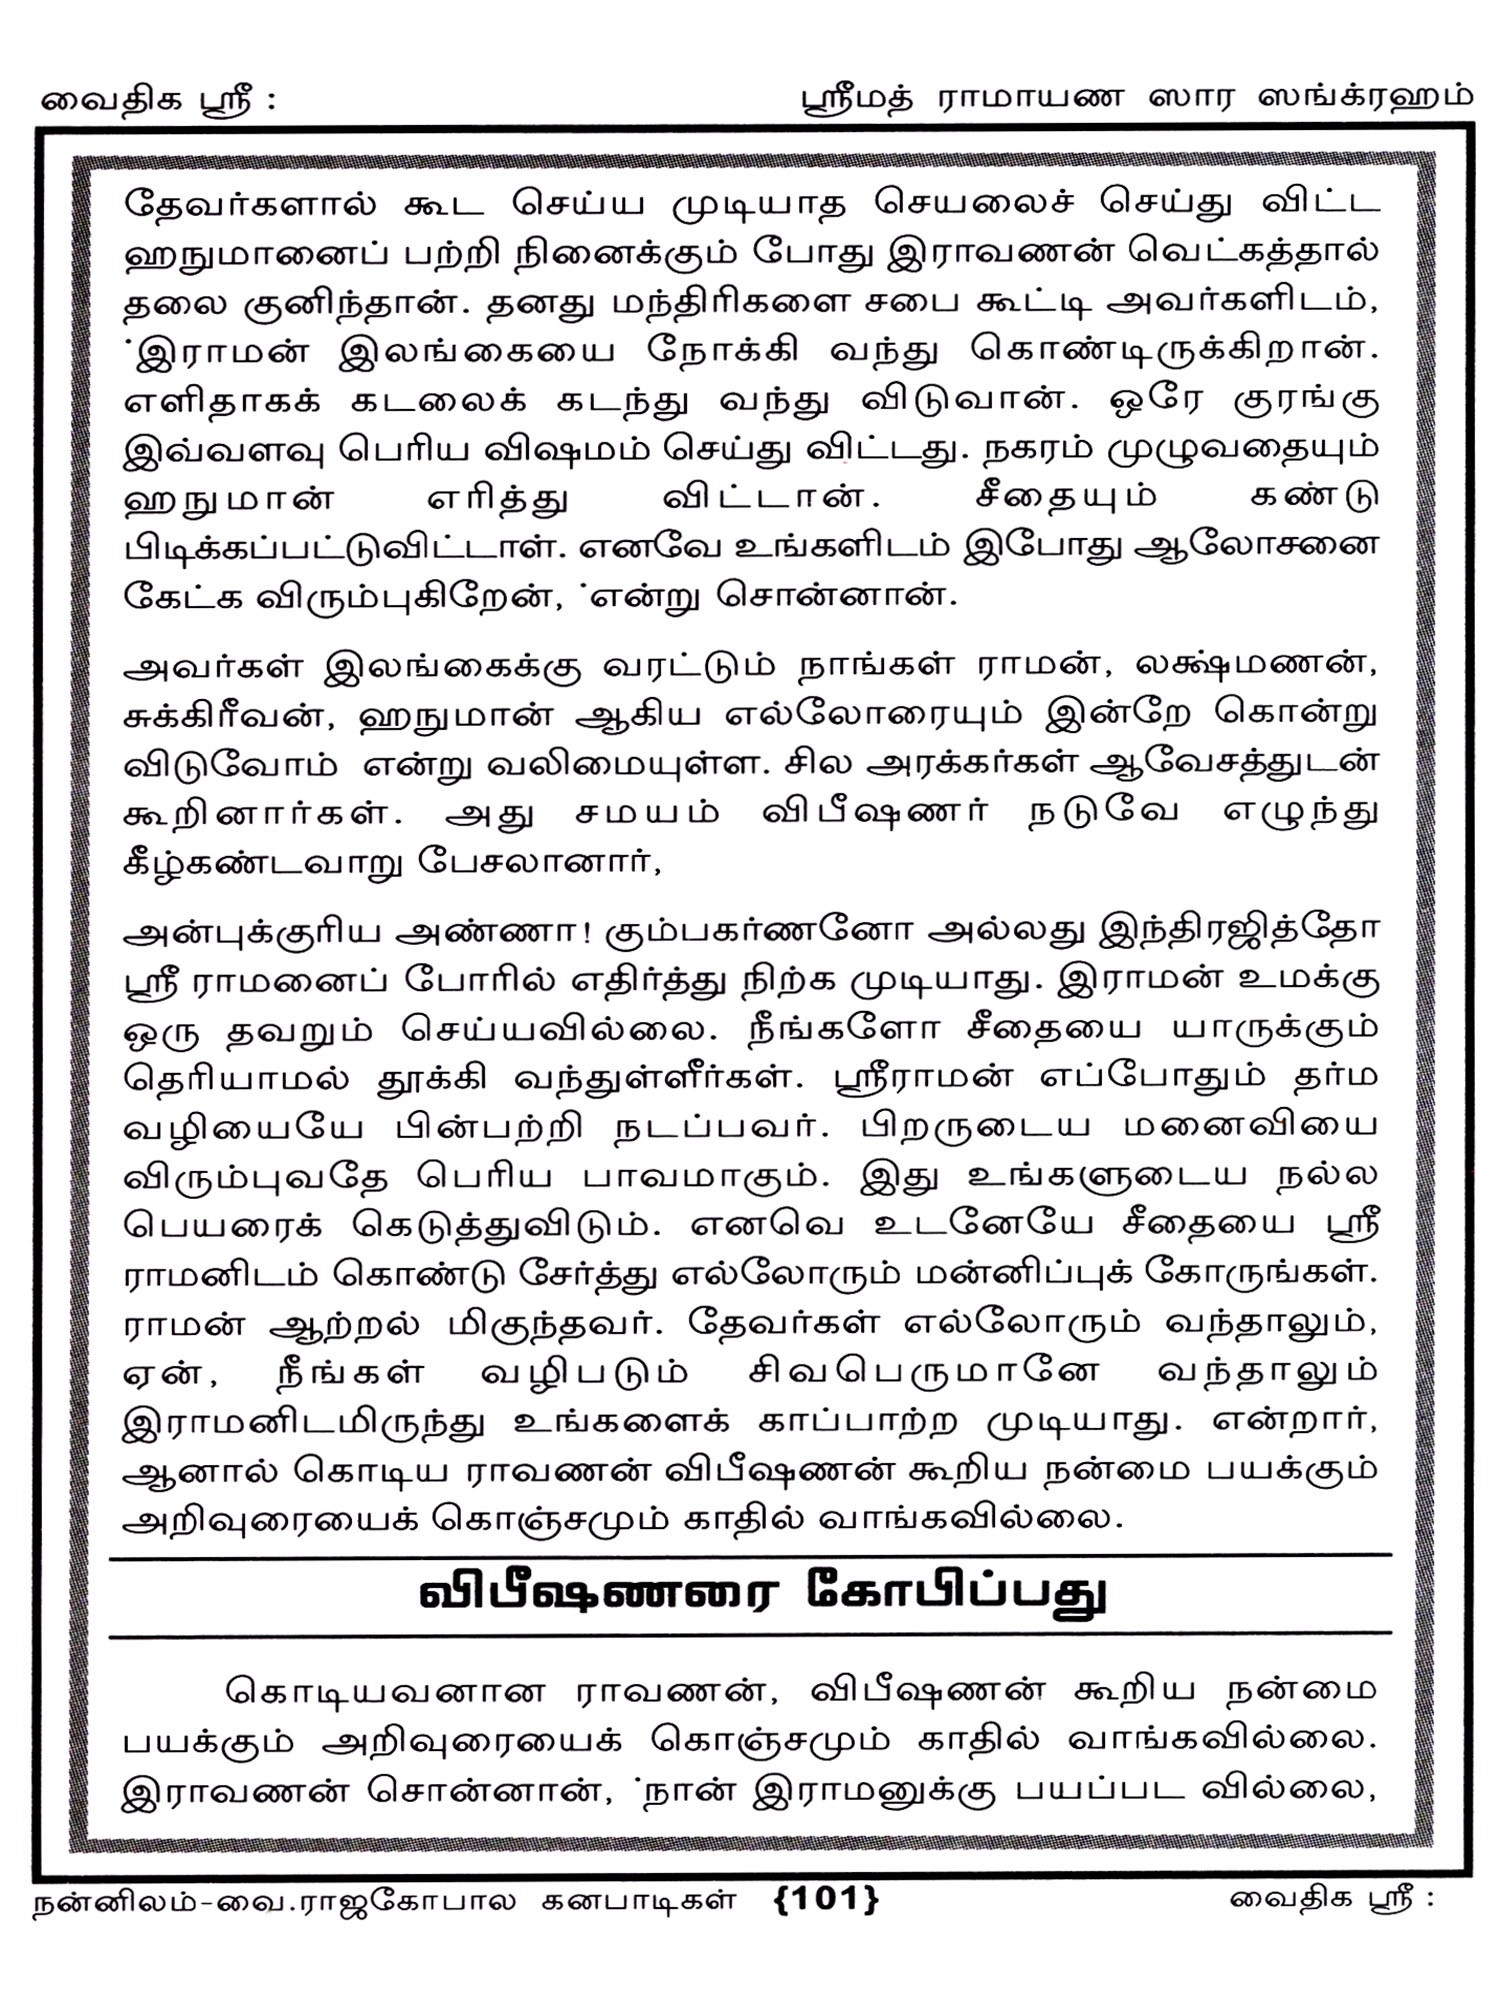 வைதிக ஸ்ரீ :
ஸ்ரீமத் ராமாயண ஸார ஸங்க்ரஹம்
தேவர்களால் கூட செய்ய முடியாத செயலைச் செய்து விட்ட
ஹநுமானைப் பற்றி நினைக்கும் போது இராவணன் வெட்கத்தால்
தலை குனிந்தான். தனது மந்திரிகளை சபை கூட்டி அவர்களிடம்,
`இராமன் இலங்கையை நோக்கி வந்து கொண்டிருக்கிறான்.
எளிதாகக் கடலைக் கடந்து வந்து விடுவான். ஒரே குரங்கு
இவ்வளவு பெரிய விஷமம் செய்து விட்டது. நகரம் முழுவதையும்
ஹநுமான் எரித்து விட்டான். சீதையும் கண்டு
பிடிக்கப்பட்டுவிட்டாள். எனவே உங்களிடம் இபோது ஆலோசனை
கேட்க விரும்புகிறேன், `என்று சொன்னான்.
அவர்கள் இலங்கைக்கு வரட்டும் நாங்கள் ராமன், லக்ஷ்மணன்,
சுக்கிரீவன், ஹநுமான் ஆகிய எல்லோரையும் இன்றே கொன்று
விடுவோம் என்று வலிமையுள்ள. சில அரக்கர்கள் ஆவேசத்துடன்
கூறினார்கள். அது சமயம் விபீஷணர் நடுவே எழுந்து
கீழ்கண்டவாறு பேசலானார்,
அன்புக்குரிய அண்ணா! கும்பகர்ணனோ அல்லது இந்திரஜித்தோ
ஸ்ரீ ராமனைப் போரில் எதிர்த்து நிற்க முடியாது. இராமன் உமக்கு
ஒரு தவறும் செய்யவில்லை. நீங்களோ சீதையை யாருக்கும்
தெரியாமல் தூக்கி வந்துள்ளீர்கள். ஸ்ரீராமன் எப்போதும் தர்ம
வழியையே பின்பற்றி நடப்பவர். பிறருடைய மனைவியை
விரும்புவதே பெரிய பாவமாகும். இது உங்களுடைய நல்ல
பெயரைக் கெடுத்துவிடும். எனவெ உடனேயே சீதையை ஸ்ரீ
ராமனிடம் கொண்டு சேர்த்து எல்லோரும் மன்னிப்புக் கோருங்கள்.
ராமன் ஆற்றல் மிகுந்தவர். தேவர்கள் எல்லோரும் வந்தாலும்,
ஏன், நீங்கள் வழிபடும் சிவபெருமானே வந்தாலும்
இராமனிடமிருந்து உங்களைக் காப்பாற்ற முடியாது. என்றார்,
ஆனால் கொடிய ராவணன் விபீஷணன் கூறிய நன்மை பயக்கும்
அறிவுரையைக் கொஞ்சமும் காதில் வாங்கவில்லை.
விபீஷணரை கோபிப்பது
கொடியவனான ராவணன், விபீஷணன் கூறிய நன்மை
பயக்கும் அறிவுரையைக் கொஞ்சமும் காதில் வாங்கவில்லை.
இராவணன் சொன்னான், `நான் இராமனுக்கு பயப்பட வில்லை,
நன்னிலம்-வை.ராஜகோபால கனபாடிகள் {101}
வைதிக ஸ்ரீ :